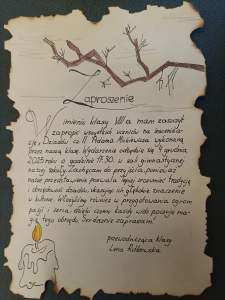 Zaproszenie
W imieniu klasy VIII a mam zaszczyt
zaprosić wszystkich uczniów na inscenizację
„Dziadów cz. II” Adama Mickiewicza wykonaną
przez naszą klasę. Wydarzenie odbędzie się 4 grudnia
2023 roku o godzinie 17.30 w sali gimnastycznej
naszej szkoły. Zachęcam do przyjścia, ponieważ
nasze przedstawienie pozwala lepiej zrozumieć tradycję
i obrzędowość dziadów, ukazując ich głębokie znaczenie
w kulturze. Włożyliśmy również w przygotowania ogrom
pasji i serca, dzięki czemu każdy widz poczuje
magię tego obrzędu. Serdecznie zapraszam!
przewodnicząca klasy
Lena